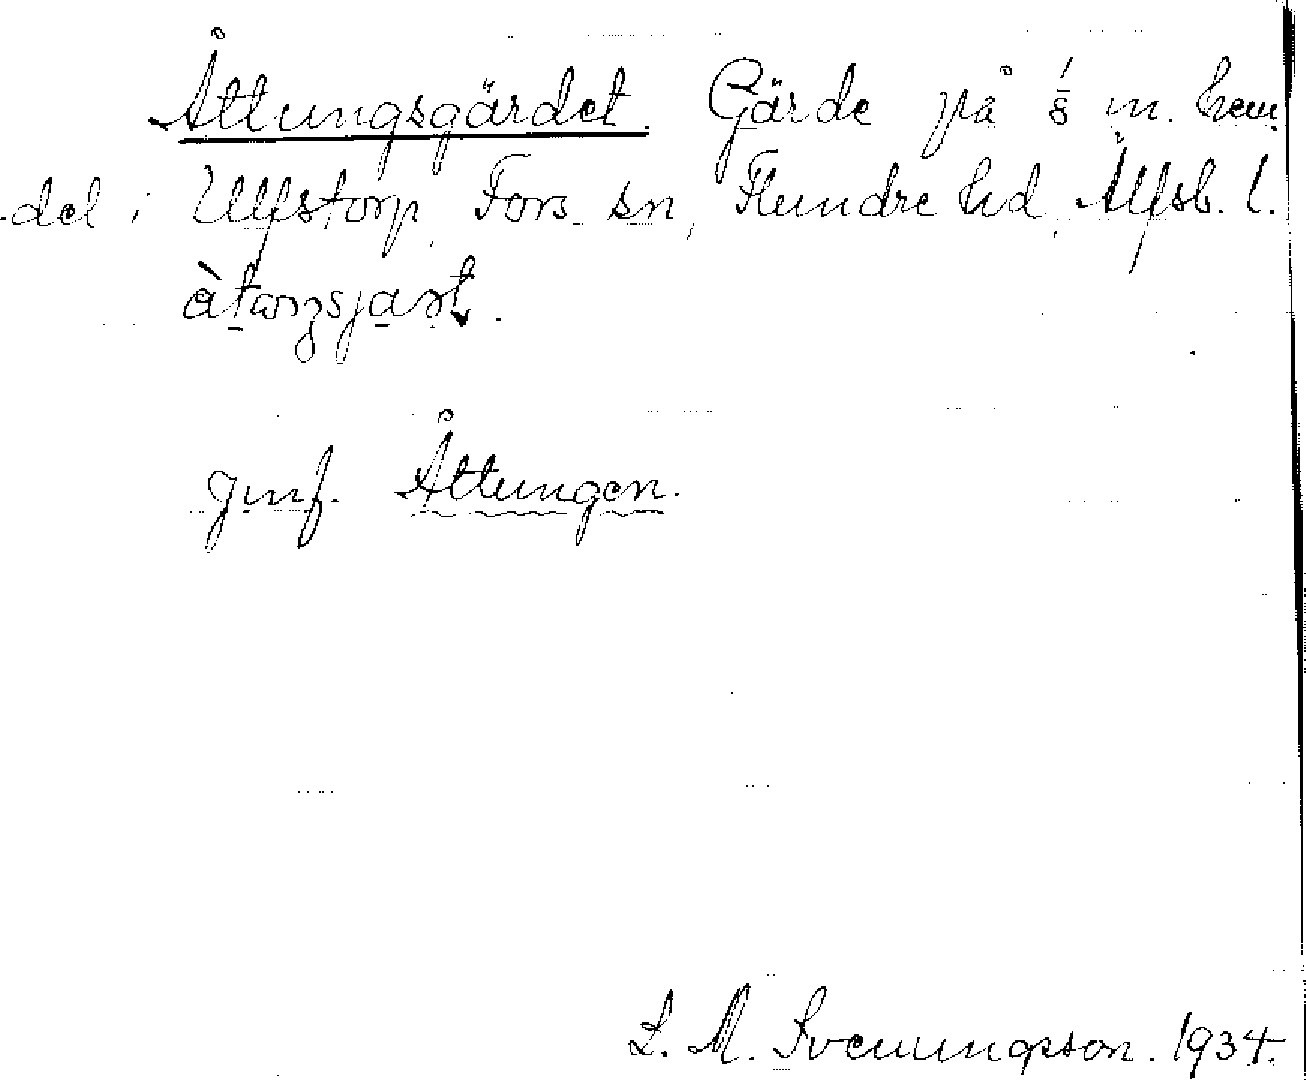 Åttungsgärdet. Gärde på 1/8 m. hem
del i Ulfstorp, Fors sn, Flundre hd, Älfsb. l.
àtaŋsjaṣt.
Jmf. Åttungen.
L. M. Svenungsson. 1934.